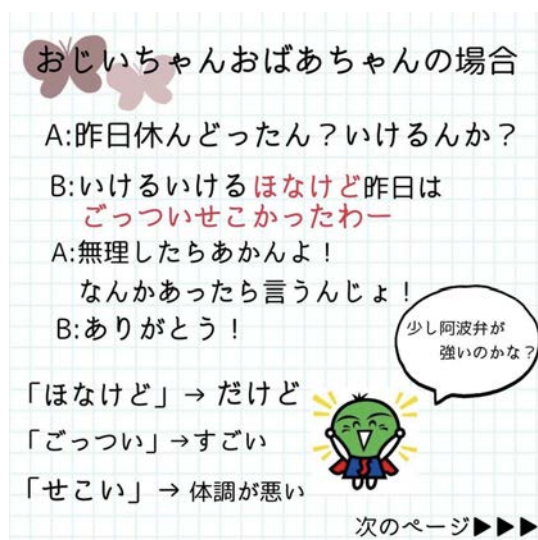 おじいちゃんおばあちゃんの場合
A:昨日休んどったん?いけるんか?
B:いけるいけるほなけど昨日は
ごっついせこかったわー
A:無理したらあかんよ!
なんかあったら言うんじょ!
B:ありがとう!
少し阿波弁が
強いのかな?
「ほなけど」→ だけど
「ごっつい」→すごい
「せこい」→ 体調が悪い
次のページ▶▶▶